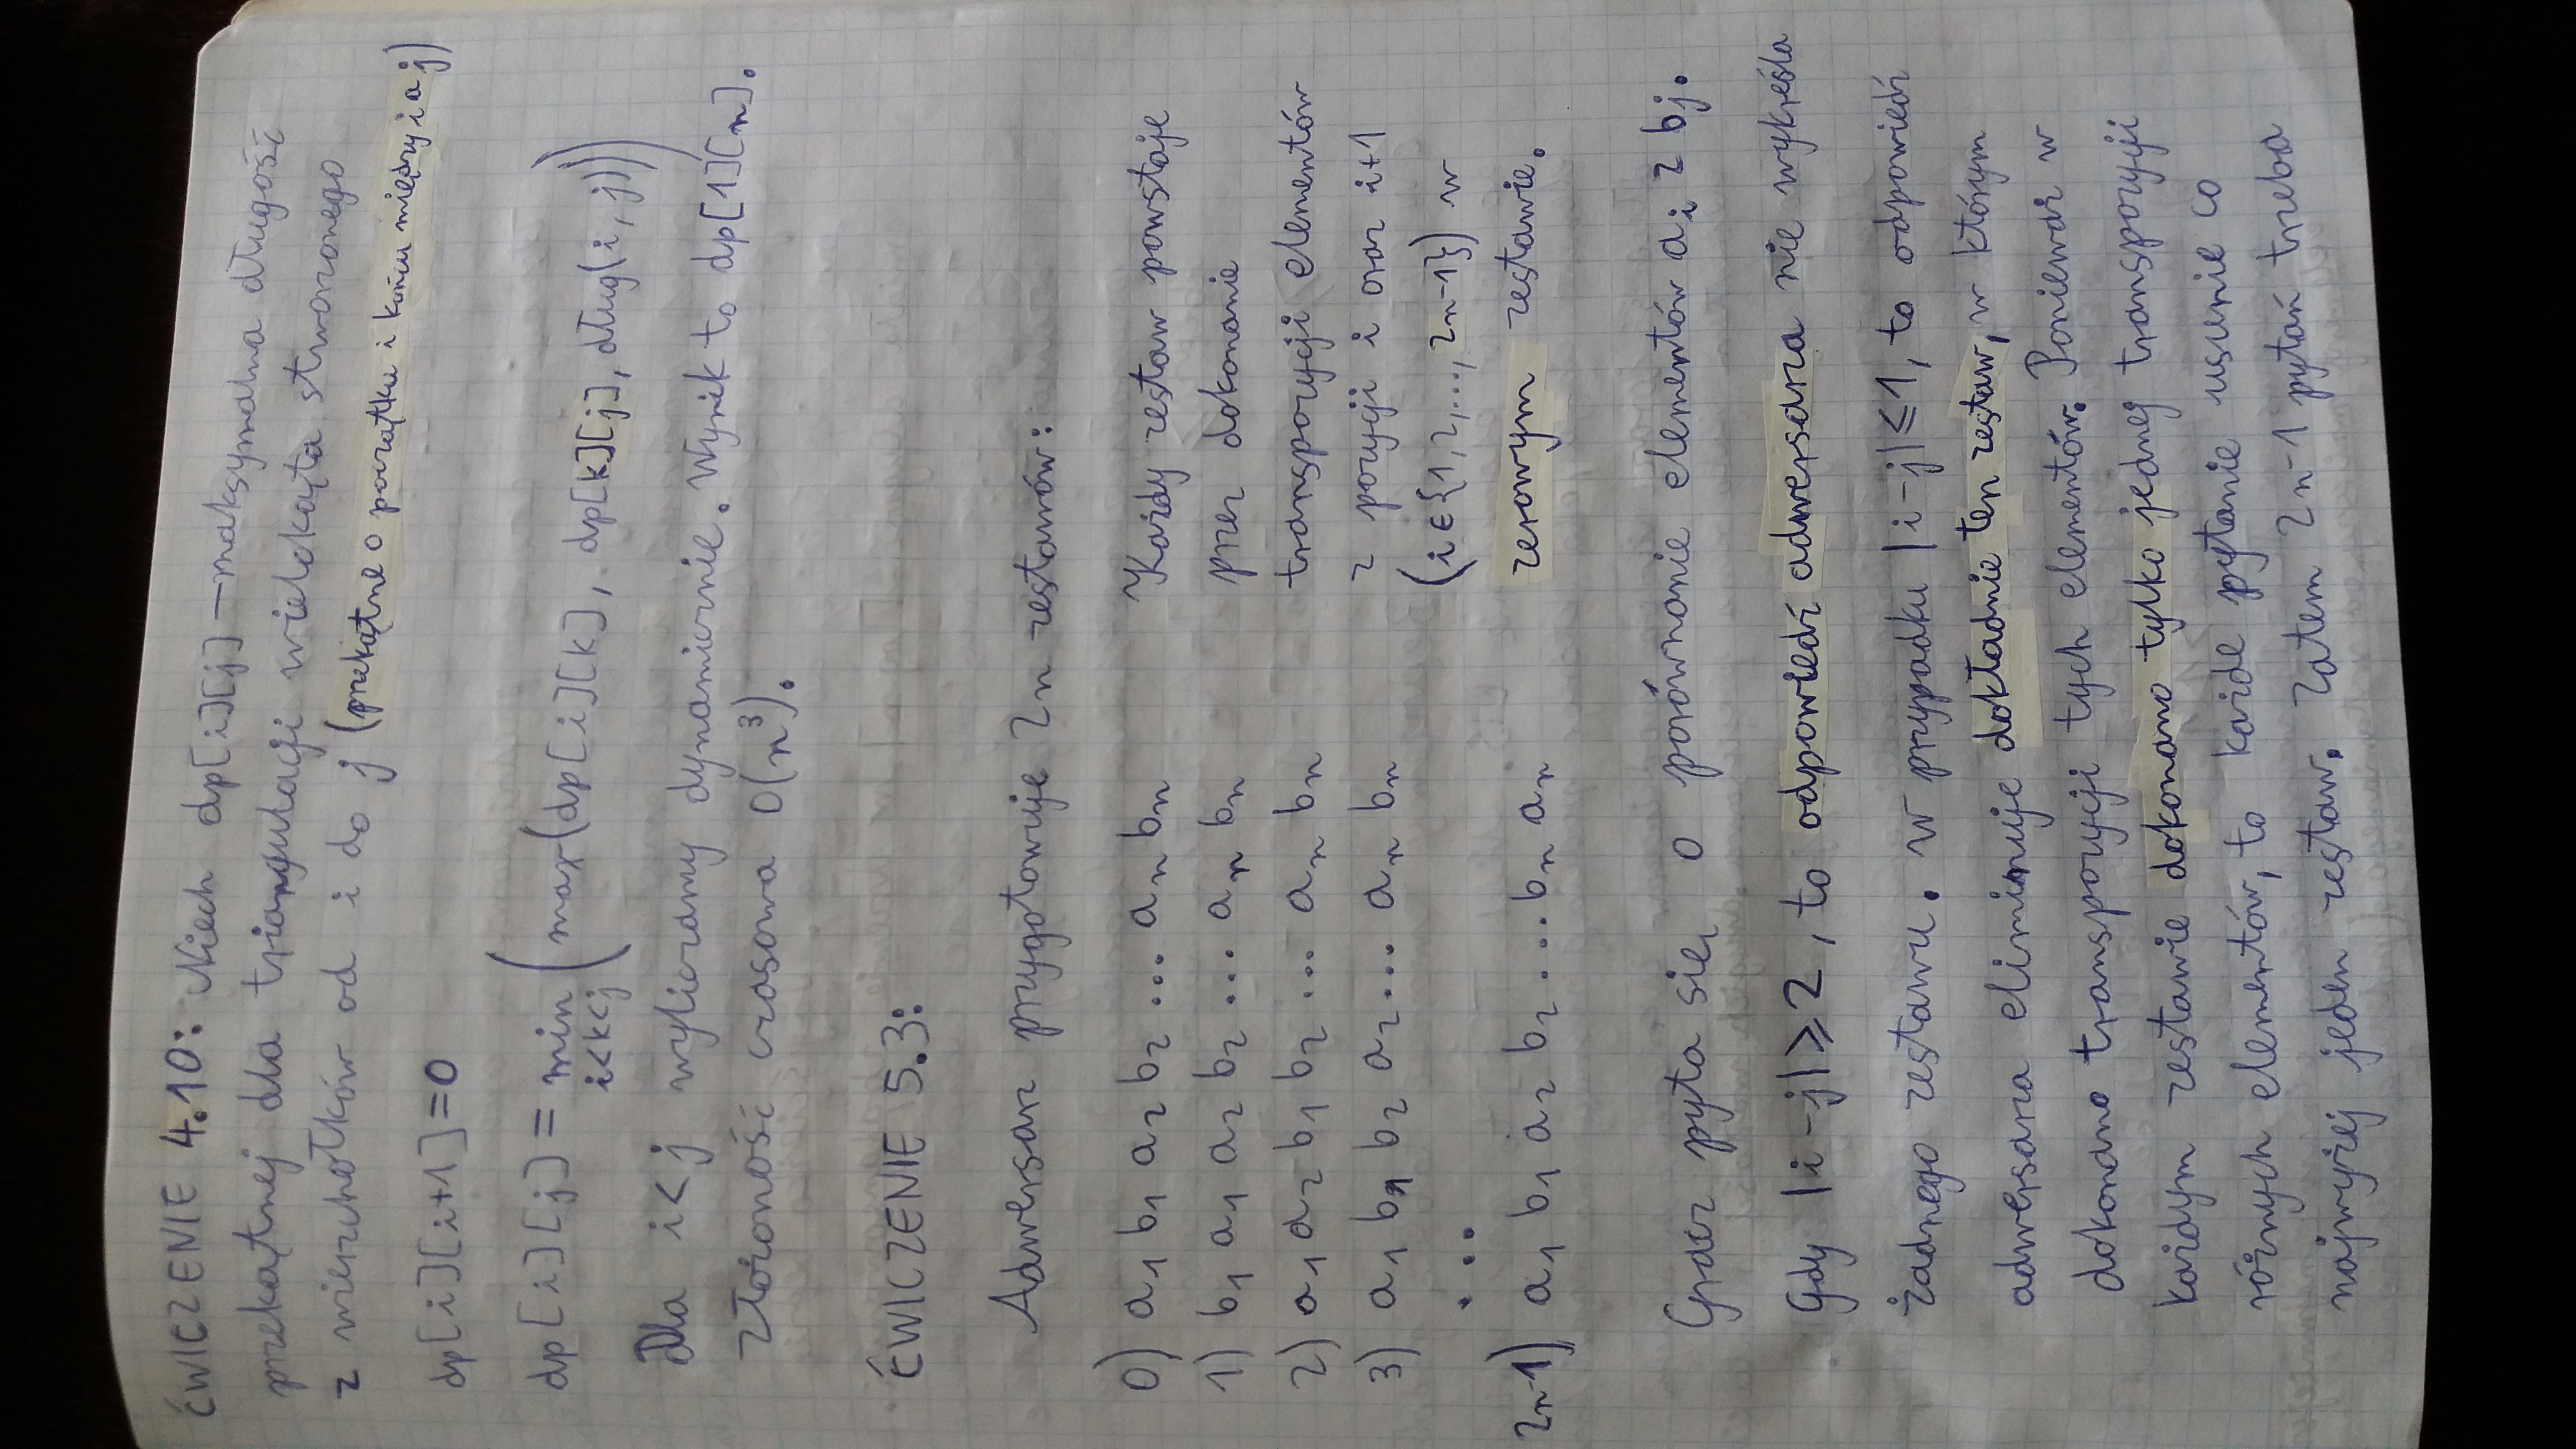 ĆWICZENIE 4.10: Niech dp[i][j] — maksymalna długość
przekątnej dla triangulacji wielokąta stworzonego
z wierzchołków od i do j (przekątne o początku i końcu między i a j)
dp[i][i+1]=0
dp[i][j] = min i<k<j (max(dp[i][k], dp[k][j], dług(i, j)))
Dla i<j wyliczamy dynamicznie. Wynik to dp[1][n].
Złożoność czasowa O(n³).
ĆWICZENIE 5.3:
Adwersarz przygotowuje 2n zestawów:
0) a₁ b₁ a₂ b₂ ... aₙ bₙ
1) b₁ a₁ a₂ b₂ ... aₙ bₙ
2) a₁ a₂ b₁ b₂ ... aₙ bₙ
3) a₁ b₁ b₂ a₂ ... aₙ bₙ
...
2n-1) a₁ b₁ a₂ b₂ ... bₙ aₙ
Każdy zestaw powstaje
przez dokonanie
transpozycji elementów
z pozycji i oraz i+1
(i ∈ {1, 2, ..., 2n-1}) w
zerowym zestawie.
Gracz pyta się o porównanie elementów aᵢ z bⱼ.
Gdy |i-j| ≥ 2, to odpowiedź adwersarza nie wykreśla
żadnego zestawu. W przypadku |i-j| ≤ 1, to odpowiedź
adwersarza eliminuje dokładnie ten zestaw, w którym
dokonano transpozycji tych elementów. Ponieważ w
każdym zestawie dokonano tylko jednej transpozycji
różnych elementów, to każde pytanie usunie co
najwyżej jeden zestaw. Zatem 2n-1 pytań trzeba